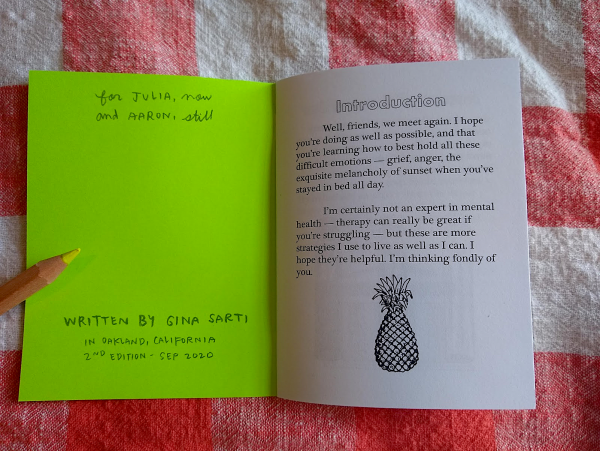 for JULIA, now
and AARON, still
WRITTEN BY GINA SARTI
IN OAKLAND, CALIFORNIA
2ND EDITION - SEP 2020
Introduction
Well, friends, we meet again. I hope
you're doing as well as possible, and that
you're learning how to best hold all these
difficult emotions — grief, anger, the
exquisite melancholy of sunset when you've
stayed in bed all day.
I'm certainly not an expert in mental
health — therapy can really be great if
you're struggling — but these are more
strategies I use to live as well as I can. I
hope they're helpful. I'm thinking fondly of
you.